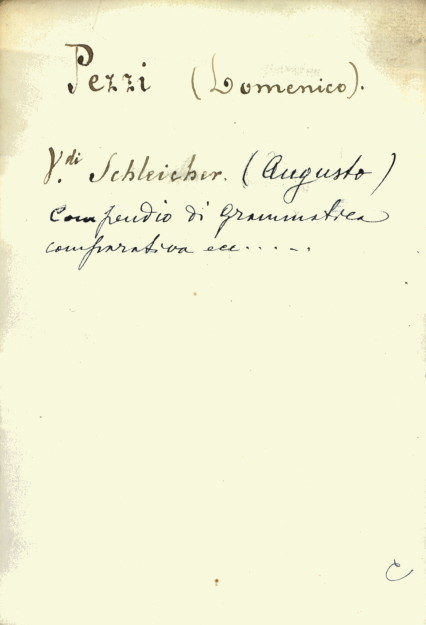 Pezzi (Domenico).
V.di Schleicher. (Augusto)
Compendio di Grammatica
comparativa ecc......
C